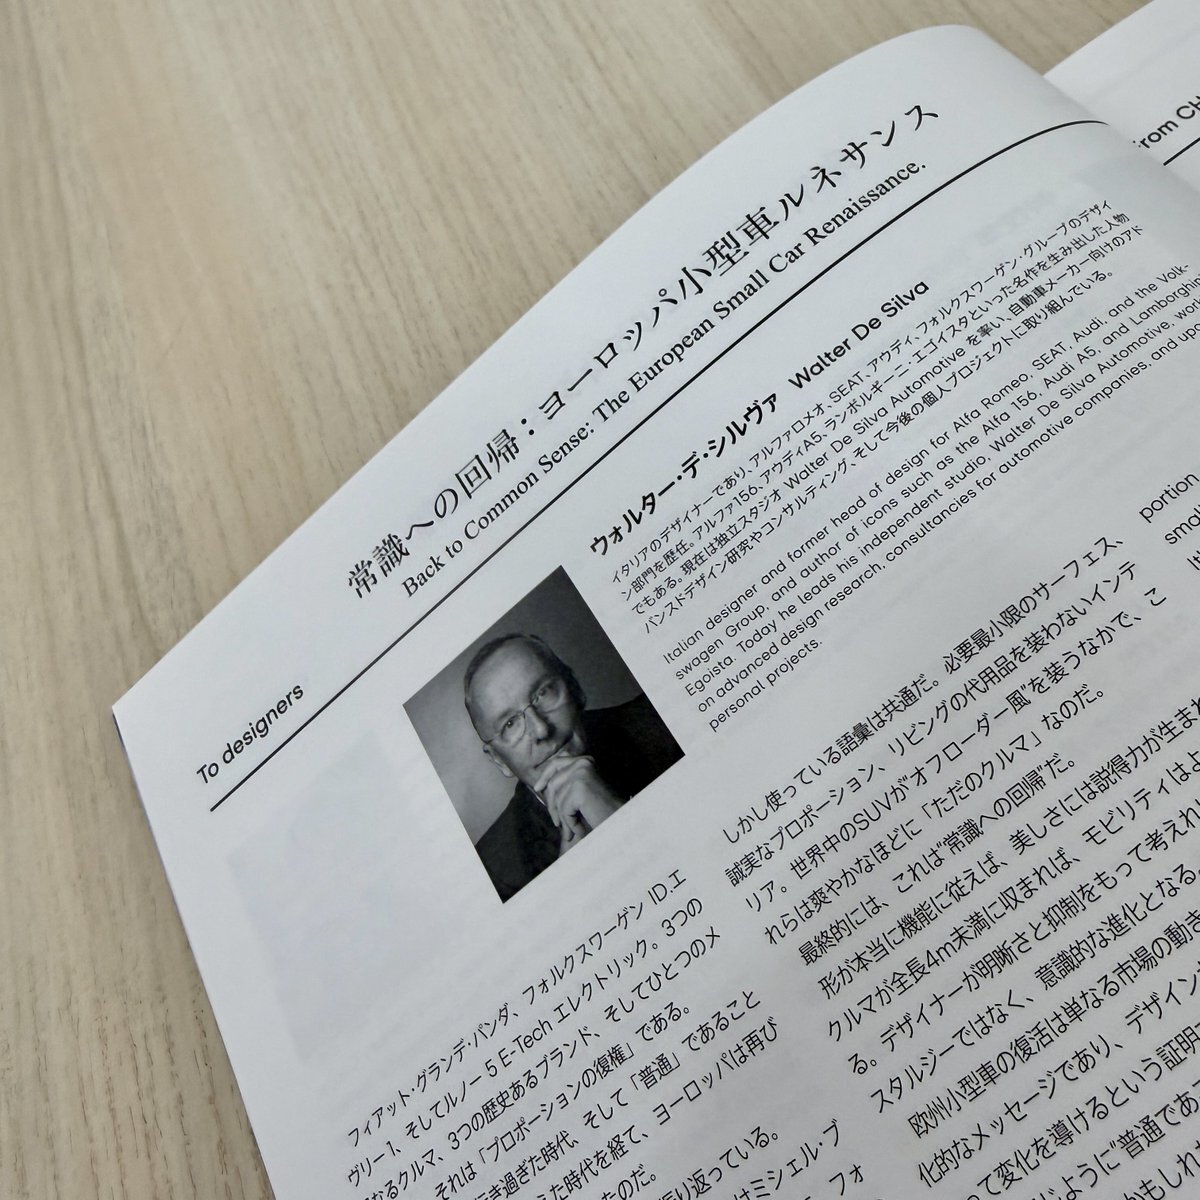 To designers
常識への回帰：ヨーロッパ小型車ルネサンス
Back to Common Sense: The European Small Car Renaissance.
ウォルター・デ・シルヴァ Walter De Silva
イタリアのデザイナーであり、アルファロメオ、SEAT、アウディ、フォルクスワーゲン・グループのデザイ
ン部門を歴任。アルファ156、アウディA5、ランボルギーニ・エゴイスタといった名作を生み出した人物
でもある。現在は独立スタジオ Walter De Silva Automotive を率い、自動車メーカー向けのアド
バンスドデザイン研究やコンサルティング、そして今後の個人プロジェクトに取り組んでいる。
Italian designer and former head of design for Alfa Romeo, SEAT, Audi, and the Volk-
swagen Group, and author of icons such as the Alfa 156, Audi A5, and Lamborghini
Egoista. Today he leads his independent studio, Walter De Silva Automotive,
on advanced design research, consultancies for automotive companies, and
personal projects.
フィアット・グランデ・パンダ、フォルクスワーゲン ID.エ
ヴリー1、そしてルノー 5 E-Tech エレクトリック。3つの
なるクルマ、3つの歴史あるブランド、そしてひとつのメ
それは「プロポーションの復権」である。
ぎ過ぎた時代、そして「普通」であること
た時代を経て、ヨーロッパは再び
なのだ。
り返っている。
はミシェル・ブ
フォ
しかし使っている語彙は共通だ。必要最小限のサーフェス、
誠実なプロポーション、リビングの代用品を装わないインテ
リア。世界中のSUVが“オフローダー風”を装うなかで、こ
れらは爽やかなほどに「ただのクルマ」なのだ。
最終的には、これは“常識への回帰”だ。
形が本当に機能に従えば、美しさには説得力が生まれ
クルマが全長4m未満に収まれば、モビリティはよ
る。デザイナーが明晰さと抑制をもって考えれ
スタルジーではなく、意識的な進化となる。
欧州小型車の復活は単なる市場の動き
化的なメッセージであり、デザイン
って変化を導けるという証明
ように“普通であ
かもしれ
portion
from